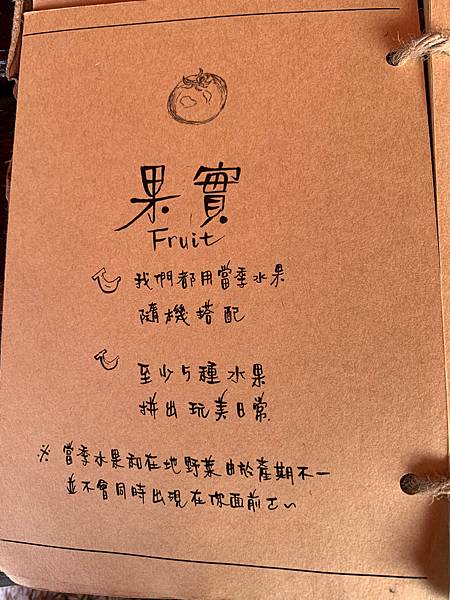 果實
Fruit
我們都用當季水果
隨機搭配
至少5種水果
拼出玩美日常
※ 當季水果和在地野菜由於產期不一
並不會同時出現在你面前